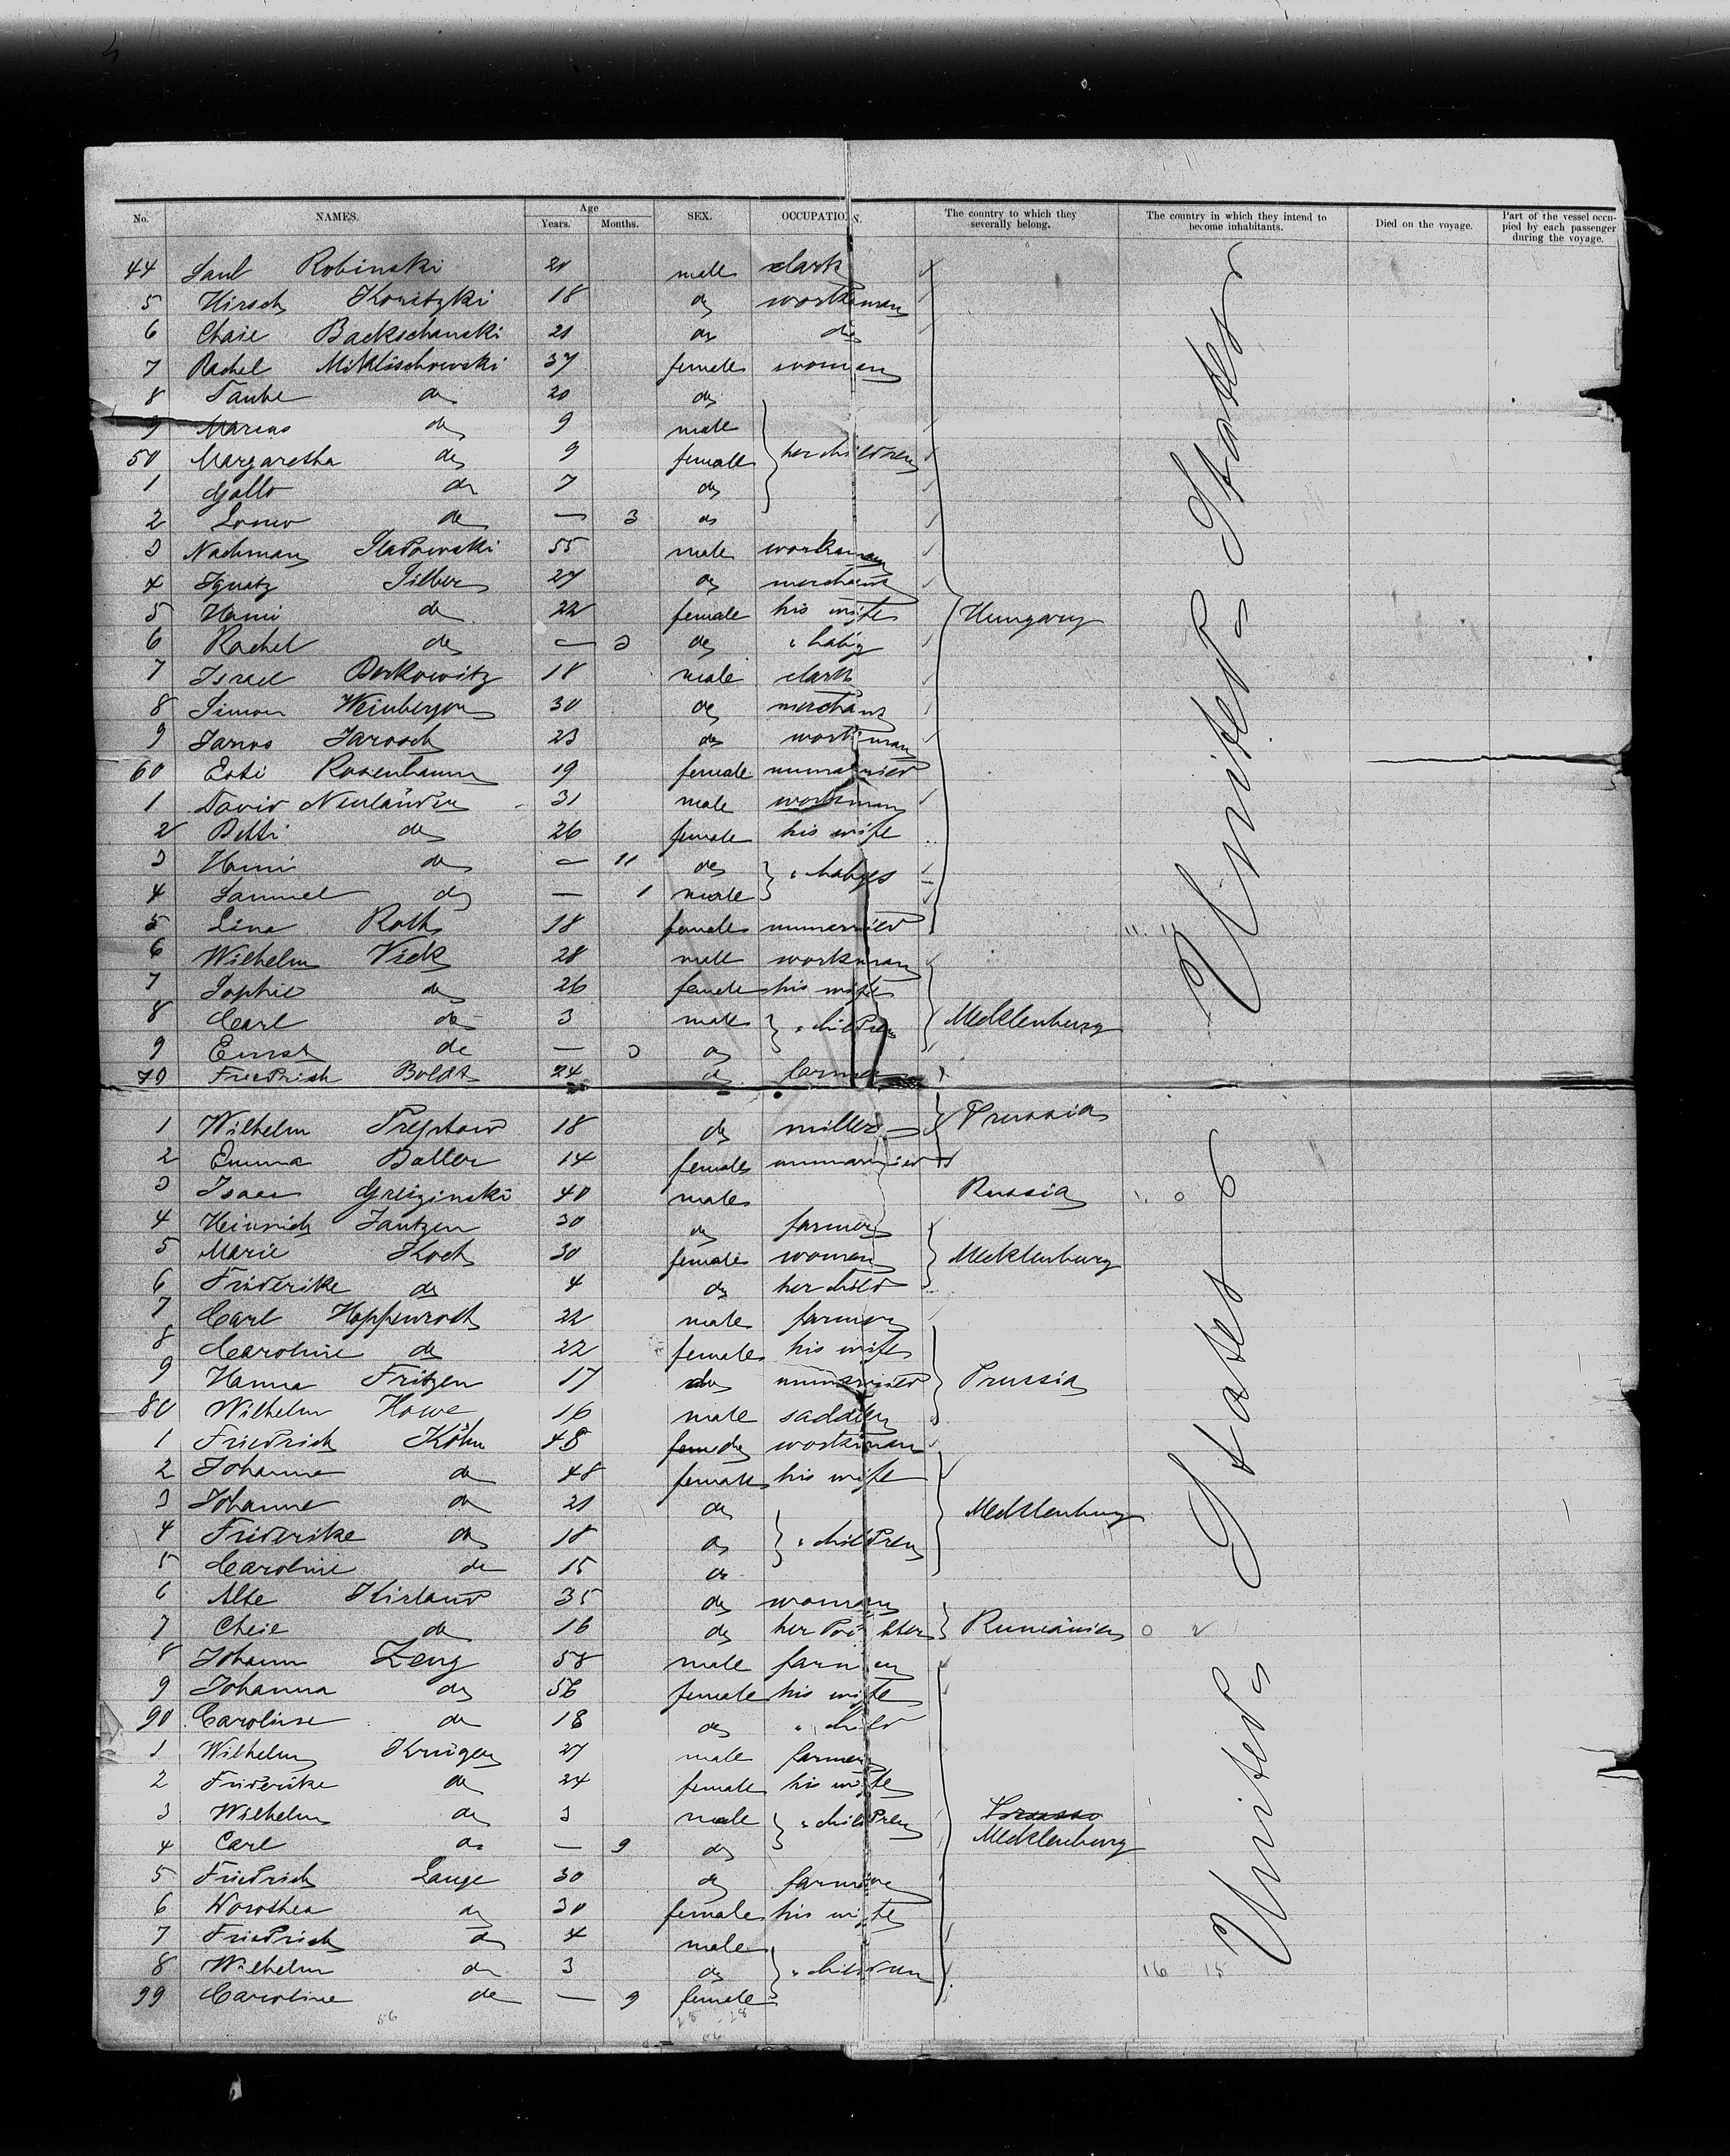 No. NAMES. Age Years. Months. SEX. OCCUPATION. The country to which they severally belong. The country in which they intend to become inhabitants. Died on the voyage. Part of the vessel occupied by each passenger during the voyage.
44 Saul Robinski 21 male clark
5 Hirsch Koritzki 18 do workman
6 Chaie Backschanski 21 do do
7 Rachel Miklischowski 37 female woman
8 Taube do 20 do
9 Marcus do 9 male
50 Margaretha do 9 female her children
1 do 7 do
2 do — 3 do
3 Nachman 55 male workman
4 Ignatz Silber 27 do merchant
5 Hani do 22 female his wife Hungary
6 Rachel do — 3 do " baby
7 Israel Berkowitz 18 male clark
8 Simon Weinberger 30 do merchant
9 Janos Jarosch 23 do workman
60 Esti Rosenbaum 19 female unmarried
1 David Neuländer 31 male workman
2 Betti do 26 female his wife
3 Hani do — 11 do " babys
4 Samuel do — 1 male
5 Lina Roth 18 female unmarried
6 Wilhelm Vick 28 male workman
7 Sophie do 26 female his wife
8 Carl do 3 male " children Mecklenburg
9 Ernst do — 3 do
70 Friedrich Boldt 24 do farmer
United States
1 Wilhelm Treptow 18 do miller Prussia
2 Emma Baller 14 female unmarried
3 Isaac Greizinski 40 male Russia
4 Heinrich Jantzen 30 do farmer
5 Marie Koch 30 female woman Mecklenburg
6 Friderike do 4 do her child
7 Carl Hoppenrath 22 male farmer
8 Caroline do 22 female his wife
9 Hanna Fritzen 17 do unmarried Prussia
80 Wilhelm Howe 16 male saddler
1 Friedrich Köhn 48 do workman
2 Johanna do 48 female his wife
3 Johanne do 21 do Mecklenburg
4 Friderike do 18 do " children
5 Caroline do 15 do
6 Alte Kirland 35 do woman
7 Cheie do 16 do her Rumänien
8 Johann Zeng 58 male farmer
9 Johanna do 56 female his wife
90 Caroline do 18 do " child
1 Wilhelm Krüger 27 male farmer
2 Friderike do 24 female his wife
3 Wilhelm do 3 male " children
4 Carl do — 9 do Mecklenburg
5 Friedrich Lange 30 do farmer
6 Dorothea do 30 female his wife
7 Friedrich do 4 male
8 Wilhelm do 3 do " children 16 15
99 Caroline do — 9 female
United States
56 28 28
56